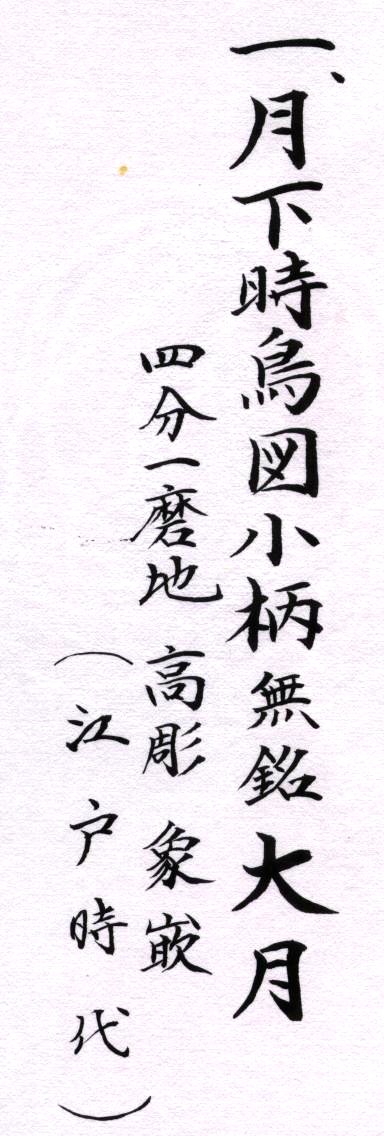 一、月下時鳥図小柄無銘大月
四分一磨地 高彫 象嵌
（江戸時代）